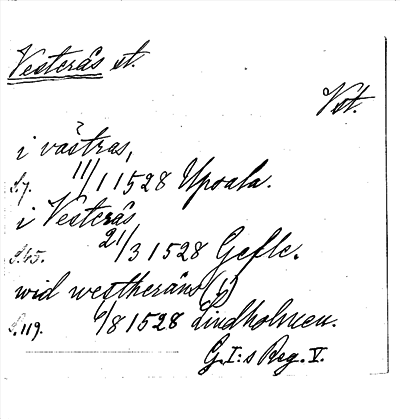 Vesterås st.
Vst.
i västras,
S.7. 11/1 1528 Upsala.
i Vesterås
S.45. 21/3 1528 Gefle.
wid westheråns (?)
S.119. 6/8 1528 Lindholmen.
G. I:s Reg. V.